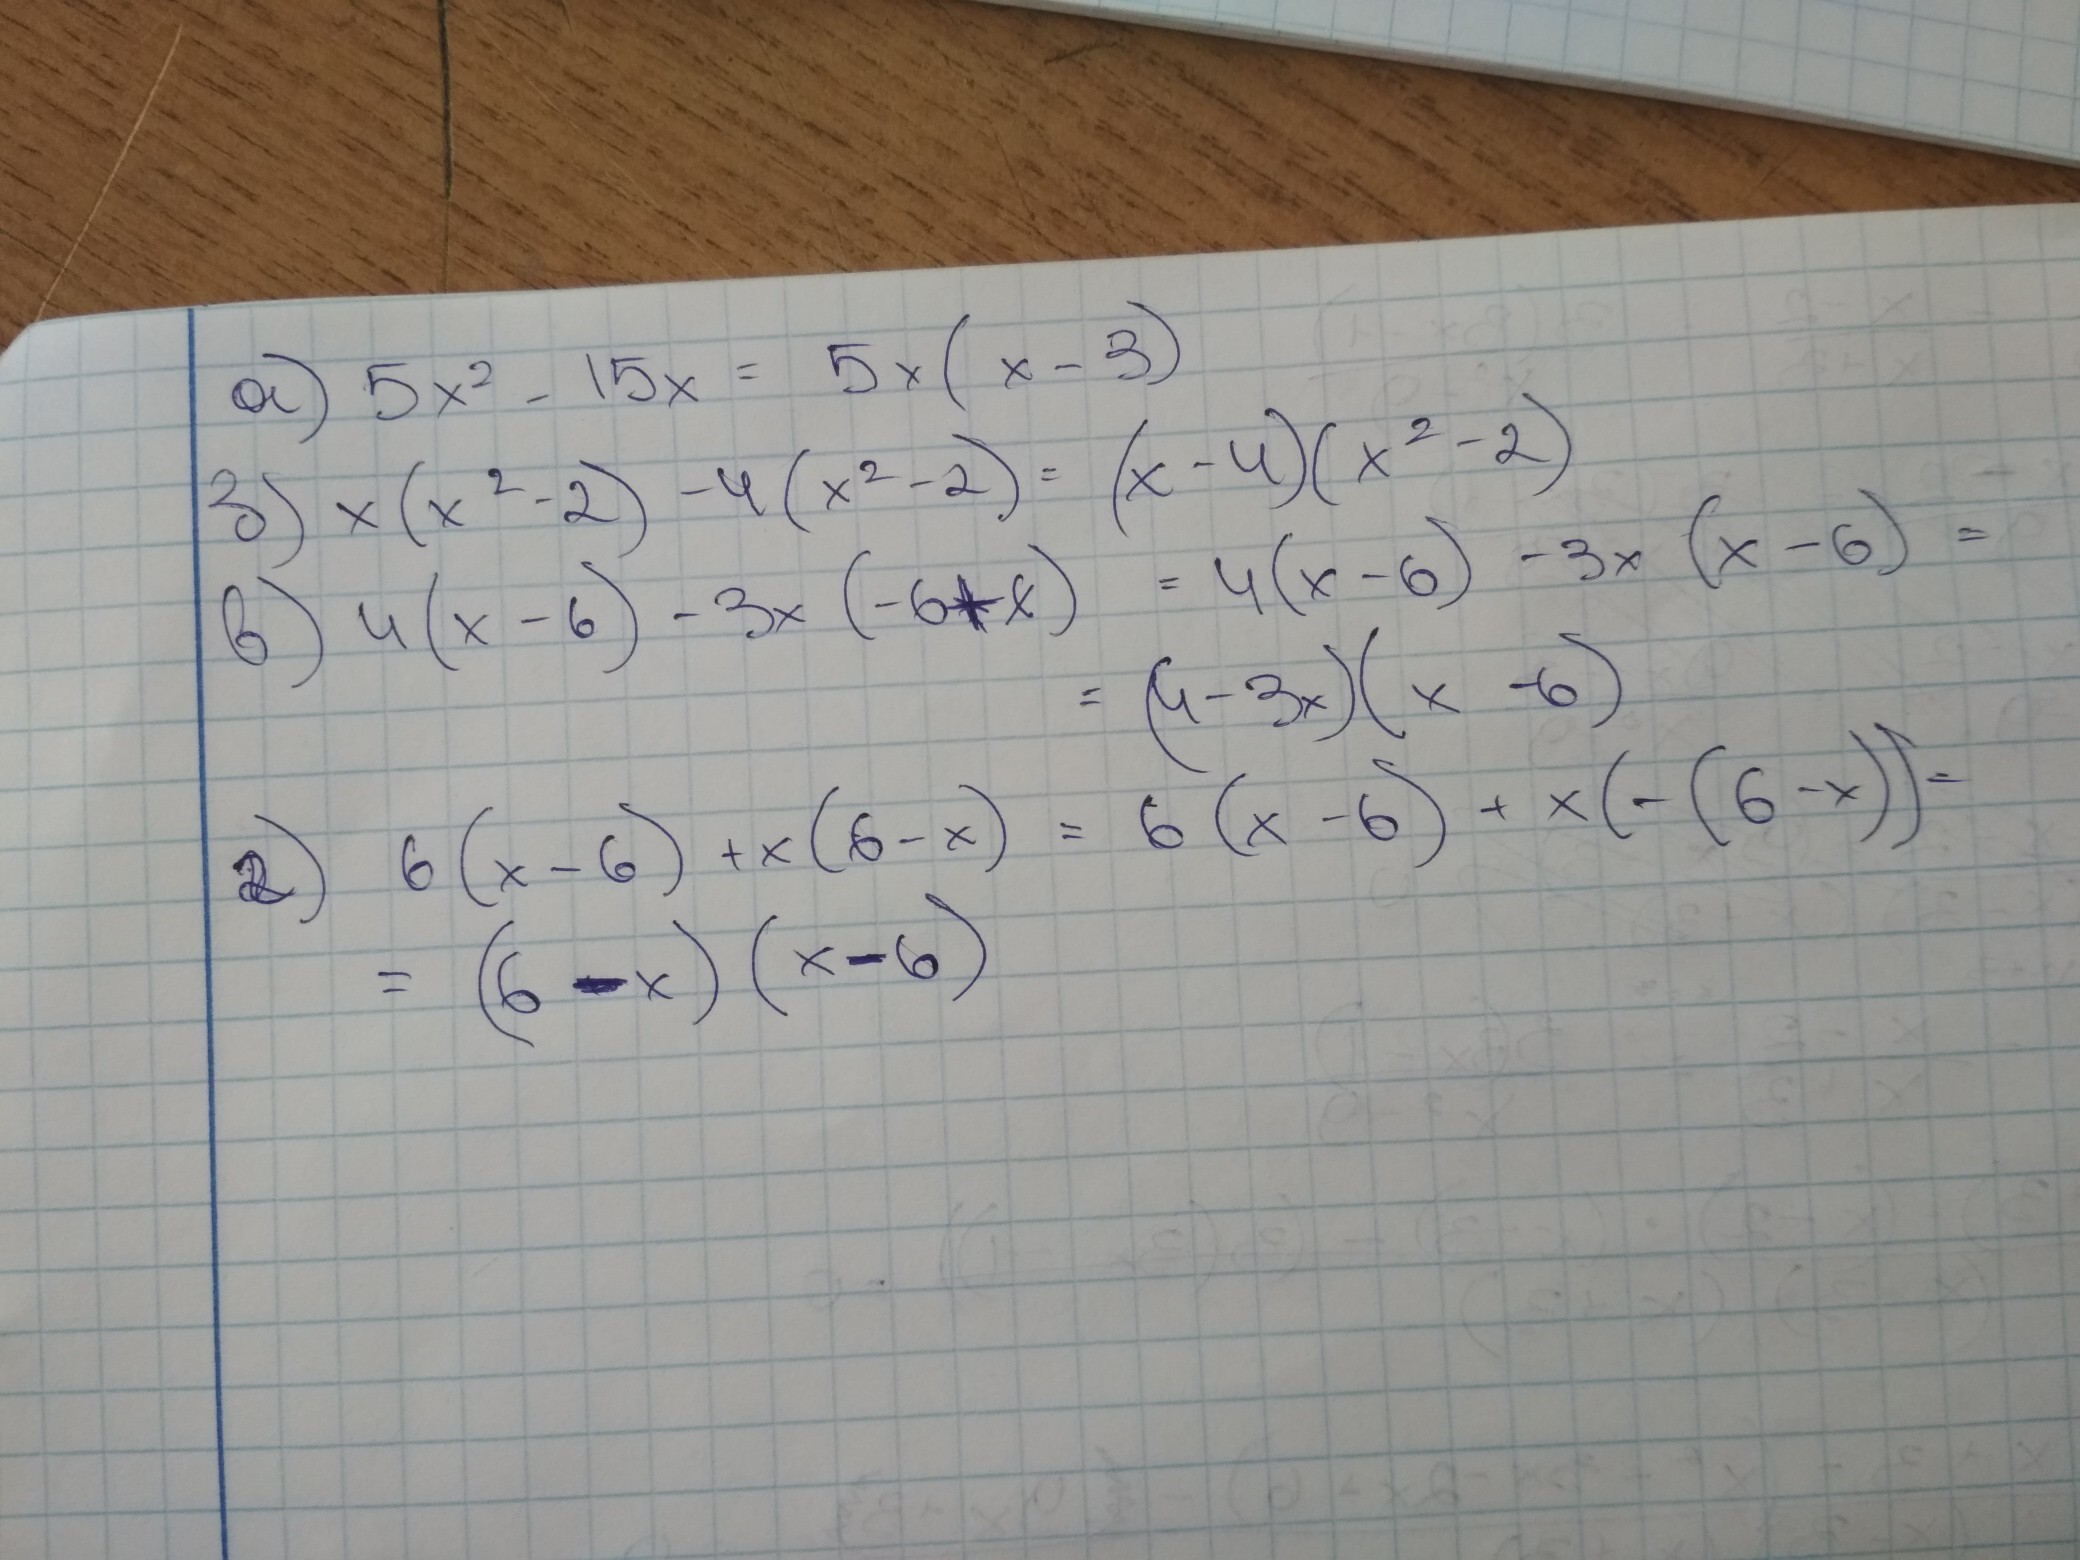 а) 5x² - 15x = 5x(x - 3)
б) x(x² - 2) - 4(x² - 2) = (x - 4)(x² - 2)
в) 4(x - 6) - 3x(-6 + x) = 4(x - 6) - 3x(x - 6) =
= (4 - 3x)(x - 6)
г) 6(x - 6) + x(6 - x) = 6(x - 6) + x(-(6 - x)) =
= (6 - x)(x - 6)